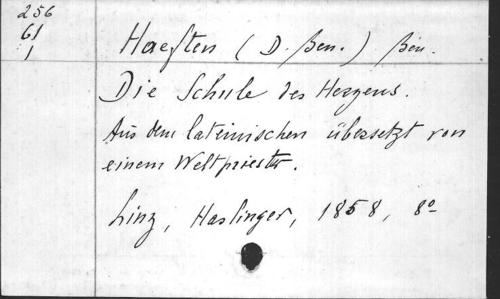 256
61
1
Haeften (D. Ben.) Ben.
Die Schule des Herzens.
Aus dem lateinischen übersetzt von
einem Weltpriester.
Linz, Haslinger, 1858, 8°